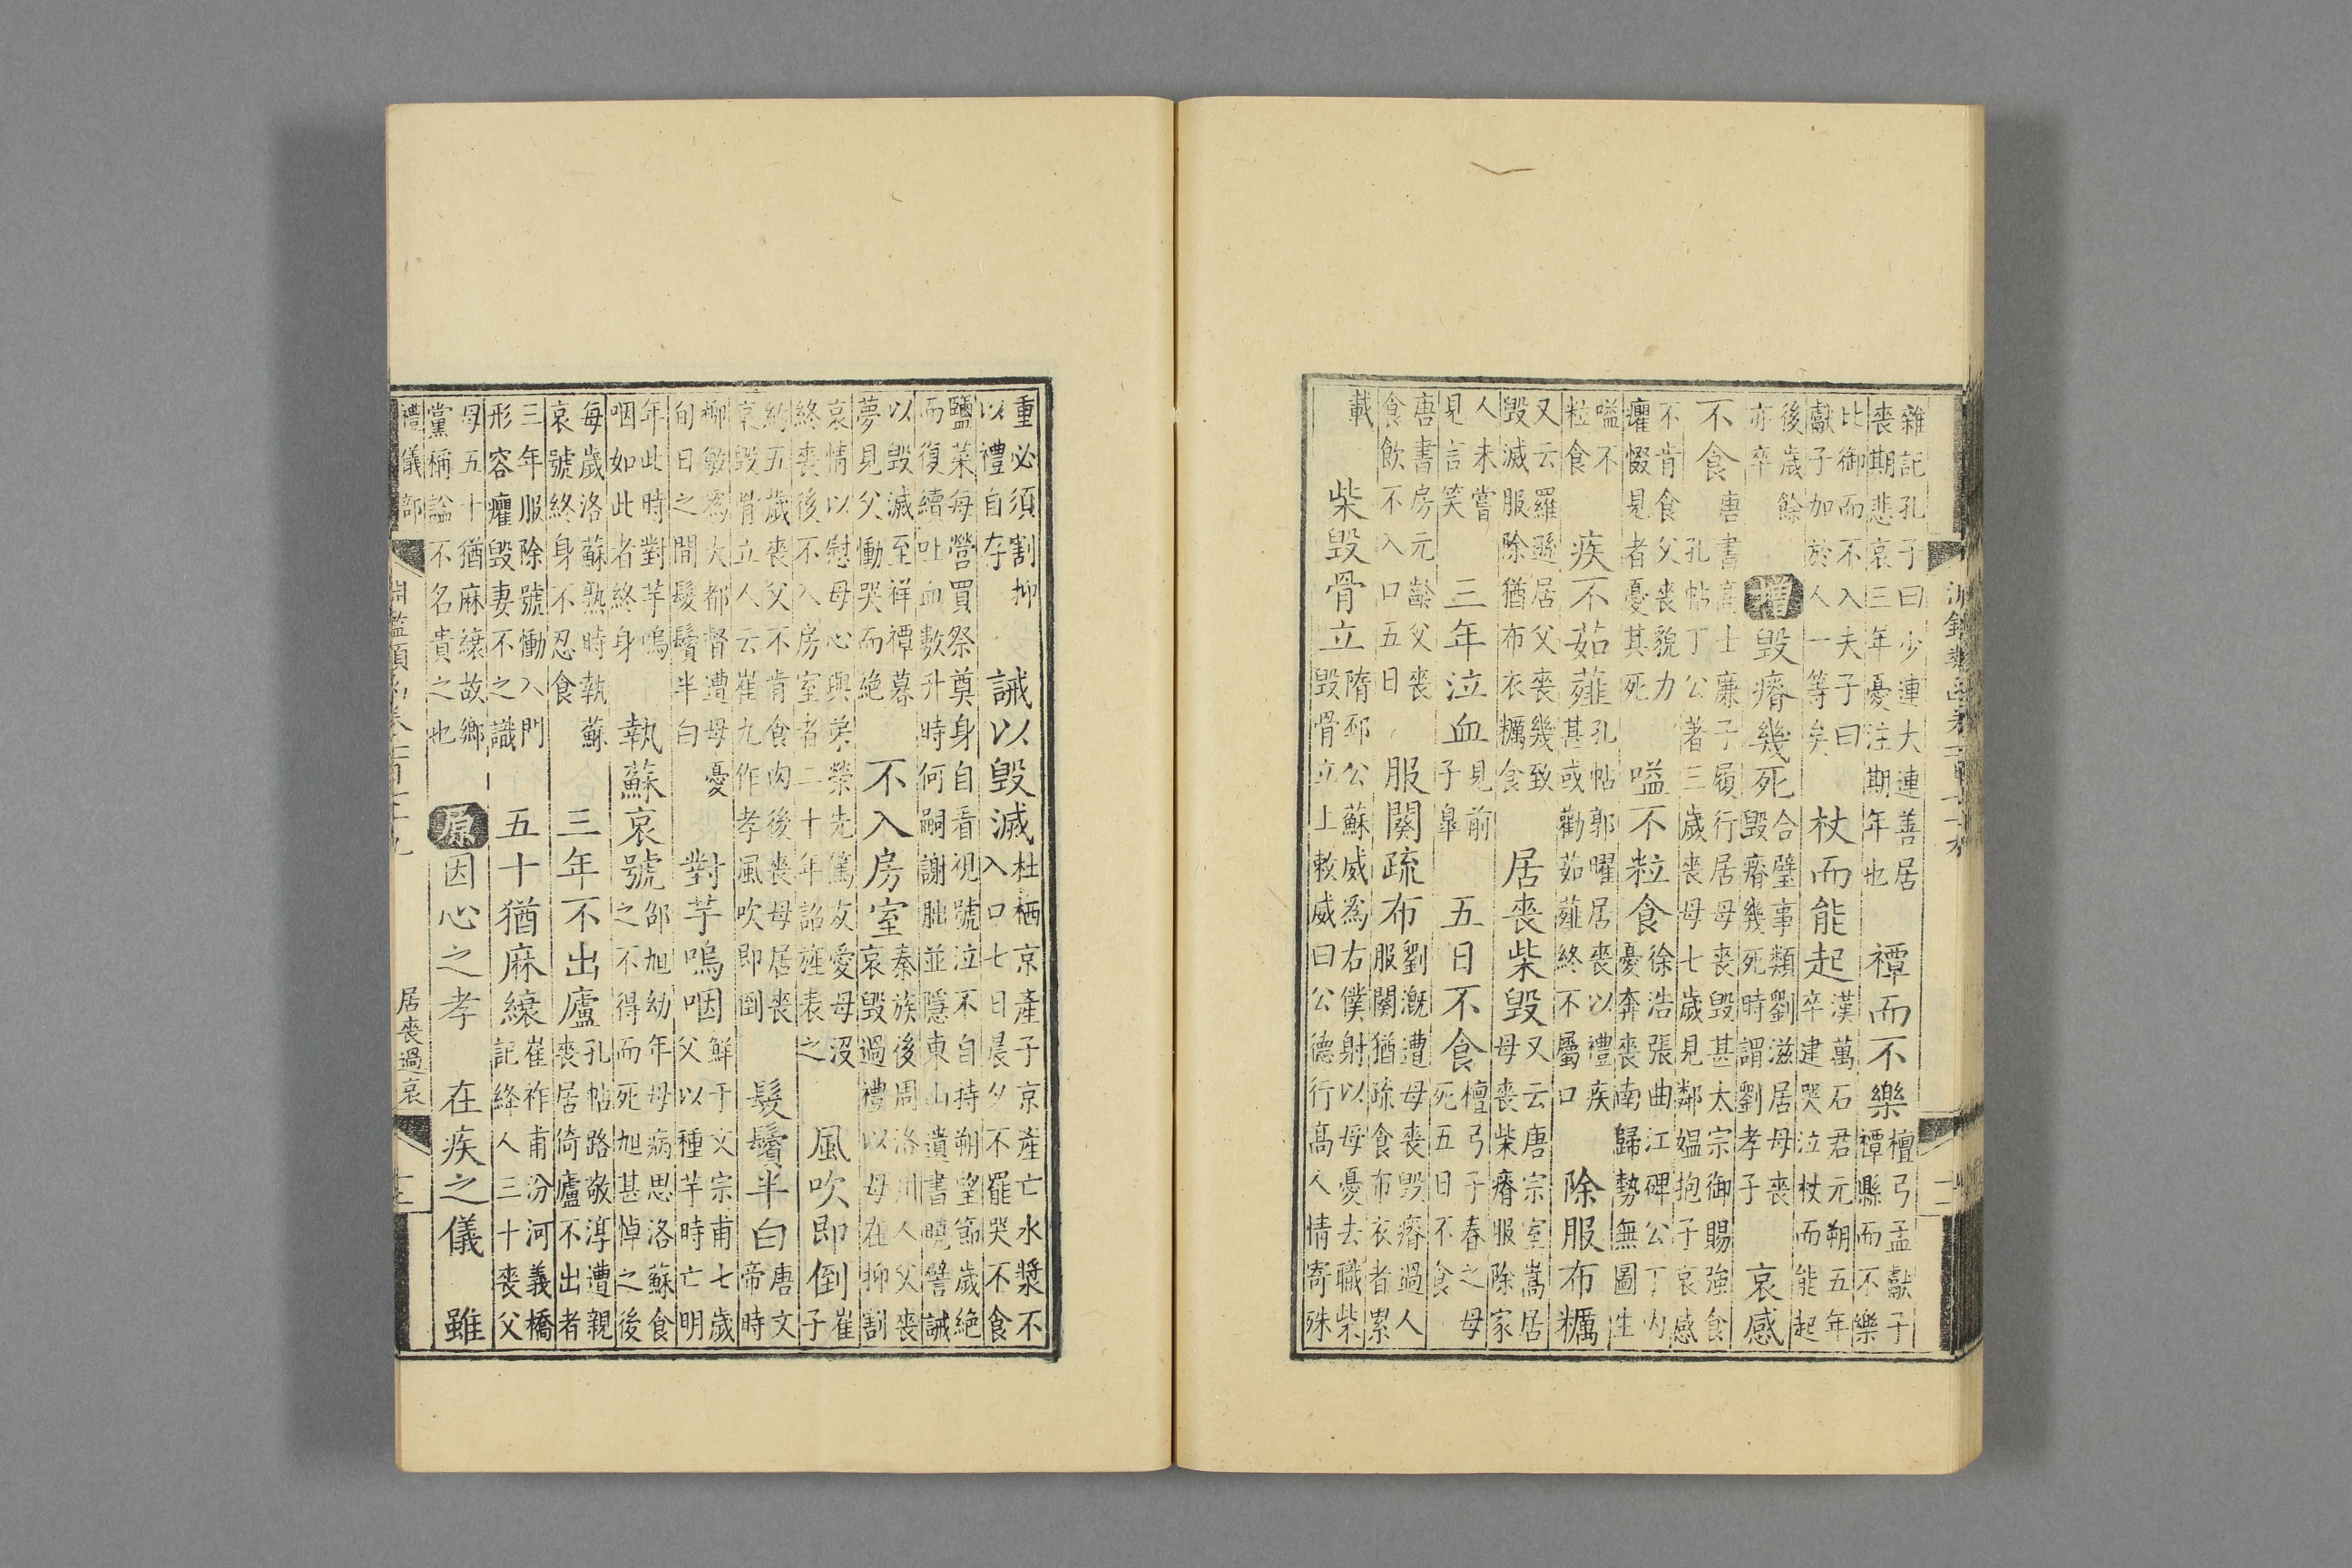 雜記孔子曰少連大連善居
喪期悲哀三年憂注期年也
禫而不樂
檀弓孟獻子
禫縣而不樂
比御而不入夫子曰
獻子加於人一等矣
杖而能起
漢萬石君元朔五年
卒建哭泣杖而能起
後歲餘
亦卒
增 毀瘠幾死
合璧事類劉滋居母喪
毀瘠幾死時謂劉孝子
哀感
不食
唐書高士廉子履行居母喪毀甚太宗御賜強食
孔帖丁公著三歲喪母七歲見鄰媼抱子哀感
不肯食父喪貌力
癯惙見者憂其死
嗌不粒食
徐浩張曲江碑公丁內
憂奔喪南歸勢無圖生
嗌不
粒食
疾不茹薤
孔帖郭曜居喪以禮疾
甚或勸茹薤終不屬口
除服布糲
又云羅遜居父喪幾致
毀滅服除猶布衣糲食
居喪柴毀
又云唐宗室嵩居
母喪柴瘠服除家
人未嘗
見言笑
三年泣血
見前
子臯
五日不食
檀弓子春之母
死五日不食
唐書房元齡父喪
食飲不入口五日
服闋疏布
劉漑遭母喪毀瘠過人
服闋猶疏食布衣者累
載
柴毀骨立
隋邳公蘇威為右僕射以母憂去職柴
毀骨立上敕威曰公德行高人情寄殊
重必須割抑
以禮自存
誡以毀滅
杜栖京產子京產亡水漿不
入口七日晨夕不罷哭不食
鹽菜每營買祭奠身自看視號泣不自持朔望節歲絕
而復續吐血數升時何嗣謝朏並隱東山遺書曉譬誡
以毀滅至祥禫暮
夢見父慟哭而絕
不入房室
秦族後周洛川人父喪
哀毀過禮以母在抑割
哀情以慰母心與弟榮先篤友愛母沒
終喪後不入房室者二十年詔旌表之
風吹即倒
崔
子
約五歲喪父不肯食肉後喪母居喪
哀毀骨立人云崔九作孝風吹即倒
髮鬢半白
唐文
帝時
柳敏為大都督遭母憂
旬日之間髮鬢半白
對芋嗚咽
鮮于文宗甫七歲
父以種芋時亡明
年此時對芋嗚
咽如此者終身
執蘇哀號
邵旭幼年母病思洛蘇食
之不得而死旭甚悼之後
每歲洛蘇熟時執蘇
哀號終身不忍食
三年不出廬
孔帖路敬淳遭親
喪居倚廬不出者
三年服除號慟入門
形容癯毀妻不之識
五十猶麻縗
崔祚甫汾河義橋
記絳人三十喪父
母五十猶麻縗故鄉
黨稱謚不名貴之也
原 因心之孝 在疾之儀 雖
禮儀部
居喪過哀